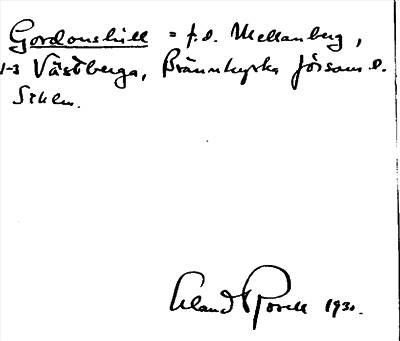 Gordonshill = f.d. Mellanberg,
1-3 Västberga, Brännkyrka församl.
Sthlm.
Erland Rosell 1930.